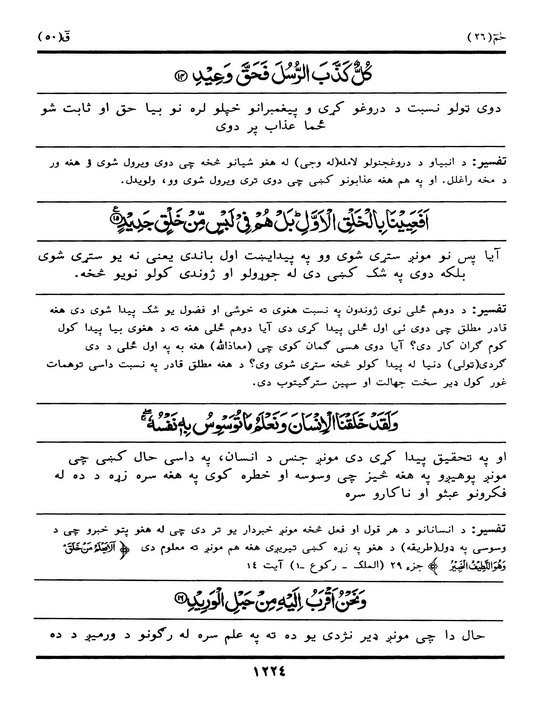 حٰمٓ (۲۶)
قٓ (۵۰)
كُلٌّ كَذَّبَ الرُّسُلَ فَحَقَّ وَعِيْدِ ⑭
دوی ټولو نسبت د دروغو کړی و پیغمبرانو خپلو لره نو بیا حق او ثابت شو
ځما عذاب پر دوی
تفسیر: د انبیاو د دروغجنولو لامله(له وجې) له هغو شیانو څخه چې دوی ویرول شوی ؤ هغه ور
د مخه راغلل. او په هم هغه عذابونو کښې چې دوی تری ویرول شوی وو، ولویدل.
اَفَعَيِيْنَا بِالْخَلْقِ الْاَوَّلِ ؕ بَلْ هُمْ فِيْ لَبْسٍ مِّنْ خَلْقٍ جَدِيْدٍ ⑮
آیا پس نو مونږ ستړی شوی وو په پیدایښت اول باندی یعنی نه یو ستړی شوی
بلکه دوی په شک کښې دی له جوړولو او ژوندی کولو نویو څخه.
تفسیر: د دوهم ځلی نوی ژوندون په نسبت هغوی ته خوشې او فضول یو شک پیدا شوی دی هغه
قادر مطلق چې دوی ئی اول ځلی پیدا کړی دی آیا دوهم ځلی هغه ته د هغوی بیا پیدا کول
کوم ګران کار دی؟ آیا دوی هسې ګمان کوی چې (معاذالله) هغه به په اول ځلی د دی
ګردی(ټولی) دنیا له پیدا کولو څخه ستړی شوی وی؟ د هغه مطلق قادر په نسبت داسې توهمات
غور کول ډیر سخت جهالت او سپین سترګیتوب دی.
وَلَقَدْ خَلَقْنَا الْاِنْسَانَ وَنَعْلَمُ مَا تُوَسْوِسُ بِهٖ نَفْسُهٗ
او په تحقیق پیدا کړی دی مونږ جنس د انسان، په داسې حال کښې چې
مونږ پوهیږو په هغه څیز چې وسوسه او خطره کوی په هغه سره زړه د ده له
فکرونو عبثو او ناکارو سره
تفسیر: د انسانانو د هر قول او فعل څخه مونږ خبردار یو تر دی چې له هغو پټو خبرو چې د
وسوسې په ډول(طریقه) د هغو په زړه کښې تیریږی هغه هم مونږ ته معلوم دی ﴿ اَلَا يَعْلَمُ مَنْ خَلَقَ
وَهُوَ اللَّطِيْفُ الْخَبِيْرُ ﴾ جزء ۲۹ (الملک ـ رکوع ـ۱) آیت ۱۴
وَنَحْنُ اَقْرَبُ اِلَيْهِ مِنْ حَبْلِ الْوَرِيْدِ ⑯
حال دا چې مونږ ډیر نژدی یو ده ته په علم سره له رګونو د ورمیږ د ده
۱۲۲۴